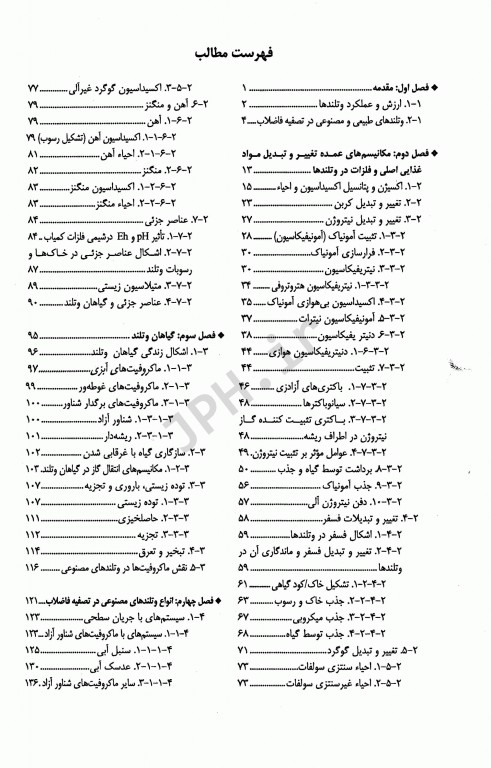 فهرست مطالب
◆ فصل اول: مقدمه ..... ۱
۱-۱. ارزش و عملکرد وتلندها ..... ۲
۲-۱. وتلندهای طبیعی و مصنوعی در تصفیه فاضلاب .... ۴
◆ فصل دوم: مکانیسم‌های عمده تغییر و تبدیل مواد
غذایی اصلی و فلزات در وتلندها ..... ۱۳
۱-۲. اکسیژن و پتانسیل اکسیداسیون و احیاء ..... ۱۵
۲-۲. تغییر و تبدیل کربن ..... ۲۳
۳-۲. تغییر و تبدیل نیتروژن ..... ۲۷
۱-۳-۲. تثبیت آمونیاک (آمونیفیکاسیون) ..... ۲۸
۲-۳-۲. فرارسازی آمونیاک ..... ۳۰
۳-۳-۲. نیتریفیکاسیون ..... ۳۰
۱-۳-۳-۲. نیتریفیکاسیون هتروتروفی ..... ۳۴
۴-۳-۲. اکسیداسیون بی‌هوازی آمونیاک ..... ۳۵
۵-۳-۲. آمونیفیکاسیون نیترات ..... ۳۷
۶-۳-۲. دنیتریفیکاسیون ..... ۳۸
۱-۶-۳-۲. دنیتریفیکاسیون هوازی ..... ۴۴
۷-۳-۲. تثبیت ..... ۴۴
۱-۷-۳-۲. باکتری‌های آزادزی ..... ۴۶
۲-۷-۳-۲. سیانوباکترها ..... ۴۸
۳-۷-۳-۲. باکتری تثبیت کننده گاز
نیتروژن در اطراف ریشه ..... ۴۸
۴-۷-۳-۲. عوامل مؤثر بر تثبیت نیتروژن. ۴۹
۸-۳-۲. برداشت توسط گیاه و جذب ..... ۵۰
۹-۳-۲. جذب آمونیاک ..... ۵۶
۱۰-۳-۲. دفن نیتروژن آلی ..... ۵۷
۴-۲. تغییر و تبدیلات فسفر ..... ۵۸
۱-۴-۲. اشکال فسفر در وتلندها ..... ۵۹
۲-۴-۲. تغییر و تبدیل فسفر و ماندگاری آن در
وتلندها ..... ۵۹
۱-۲-۴-۲. تشکیل خاک/کود گیاهی ..... ۶۱
۲-۲-۴-۲. جذب خاک و رسوب ..... ۶۳
۳-۲-۴-۲. جذب میکروبی ..... ۶۷
۴-۲-۴-۲. جذب توسط گیاه ..... ۶۸
۵-۲. تغییر و تبدیل گوگرد ..... ۷۱
۱-۵-۲. احیاء سنتزی سولفات ..... ۷۳
۲-۵-۲. احیاء غیرسنتزی سولفات ..... ۷۳
۳-۵-۲. اکسیداسیون گوگرد غیرآلی ..... ۷۷
۶-۲. آهن و منگنز ..... ۷۹
۱-۶-۲. آهن ..... ۷۹
۱-۱-۶-۲. اکسیداسیون آهن (تشکیل رسوب) ۷۹
۲-۱-۶-۲. احیاء آهن ..... ۸۱
۲-۶-۲. منگنز ..... ۸۲
۱-۲-۶-۲. اکسیداسیون منگنز ..... ۸۳
۲-۲-۶-۲. احیاء منگنز ..... ۸۳
۷-۲. عناصر جزئی ..... ۸۴
۱-۷-۲. تأثیر pH و Eh درشیمی فلزات کمیاب .. ۸۴
۲-۷-۲. اشکال عناصر جزئی در خاک‌ها و
رسوبات وتلند ..... ۸۷
۳-۷-۲. متیلاسیون زیستی ..... ۸۹
۴-۷-۲. عناصر جزئی و گیاهان وتلند ..... ۹۰
◆ فصل سوم: گیاهان وتلند ..... ۹۵
۱-۳. اشکال زندگی گیاهان وتلند ..... ۹۶
۱-۱-۳. ماکروفیت‌های آبزی ..... ۹۷
۲-۱-۳. ماکروفیت‌های غوطه‌ور ..... ۹۹
۳-۱-۳. ماکروفیت‌های برگدار شناور ..... ۱۰۰
۱-۳-۱-۳. شناور آزاد ..... ۱۰۰
۲-۳-۱-۳. ریشه‌دار ..... ۱۰۱
۲-۳. سازگاری گیاه با غرقابی شدن ..... ۱۰۲
۱-۲-۳. مکانیسم‌های انتقال گاز در گیاهان وتلند. ۱۰۳
۳-۳. توده زیستی، باروری و تجزیه ..... ۱۰۷
۱-۳-۳. توده زیستی ..... ۱۰۷
۲-۳-۳. حاصلخیزی ..... ۱۱۱
۳-۳-۳. تجزیه ..... ۱۱۲
۴-۳. تبخیر و تعرق ..... ۱۱۴
۵-۳. نقش ماکروفیت‌ها در وتلندهای مصنوعی ..... ۱۱۶
◆ فصل چهارم: انواع وتلندهای مصنوعی در تصفیه فاضلاب ... ۱۲۱
۱-۴. سیستم‌های با جریان سطحی ..... ۱۲۳
۱-۱-۴. سیستم‌های با ماکروفیت‌های شناور آزاد ... ۱۲۳
۱-۱-۱-۴. سنبل آبی ..... ۱۲۵
۲-۱-۱-۴. عدسک آبی ..... ۱۳۰
۳-۱-۱-۴. سایر ماکروفیت‌های شناور آزاد . ۱۳۶
JPH.ir